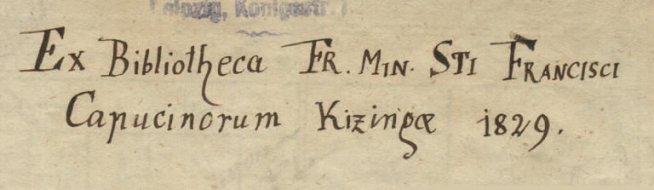 Leipzig, Königsstr.
Ex Bibliotheca FR. MIN. STI FRANCISCI
Capucinorum Kizingæ 1829.